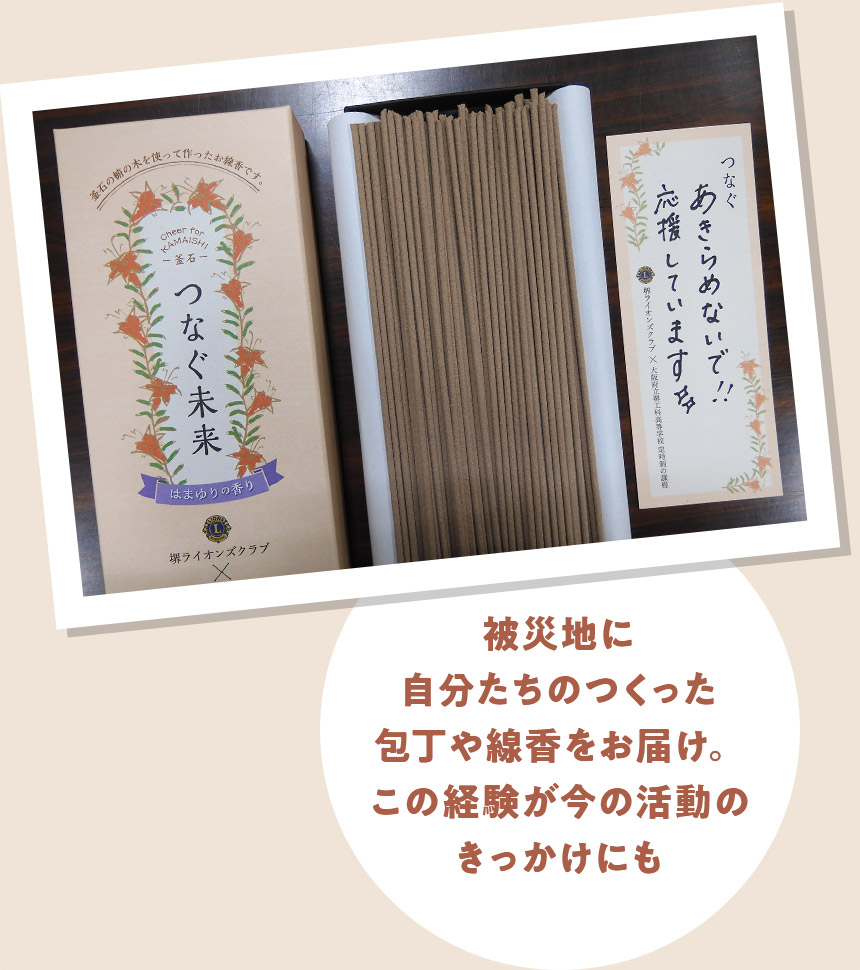 釜石の楠の木を使って作ったお線香です。
Cheer for
KAMAISHI
－釜石－
つなぐ未来
はまゆりの香り
堺ライオンズクラブ
×
つなぐ
あきらめないで!!
応援しています
堺ライオンズクラブ × 大阪府立堺工科高等学校 定時制の課程
被災地に
自分たちのつくった
包丁や線香をお届け。
この経験が今の活動の
きっかけにも